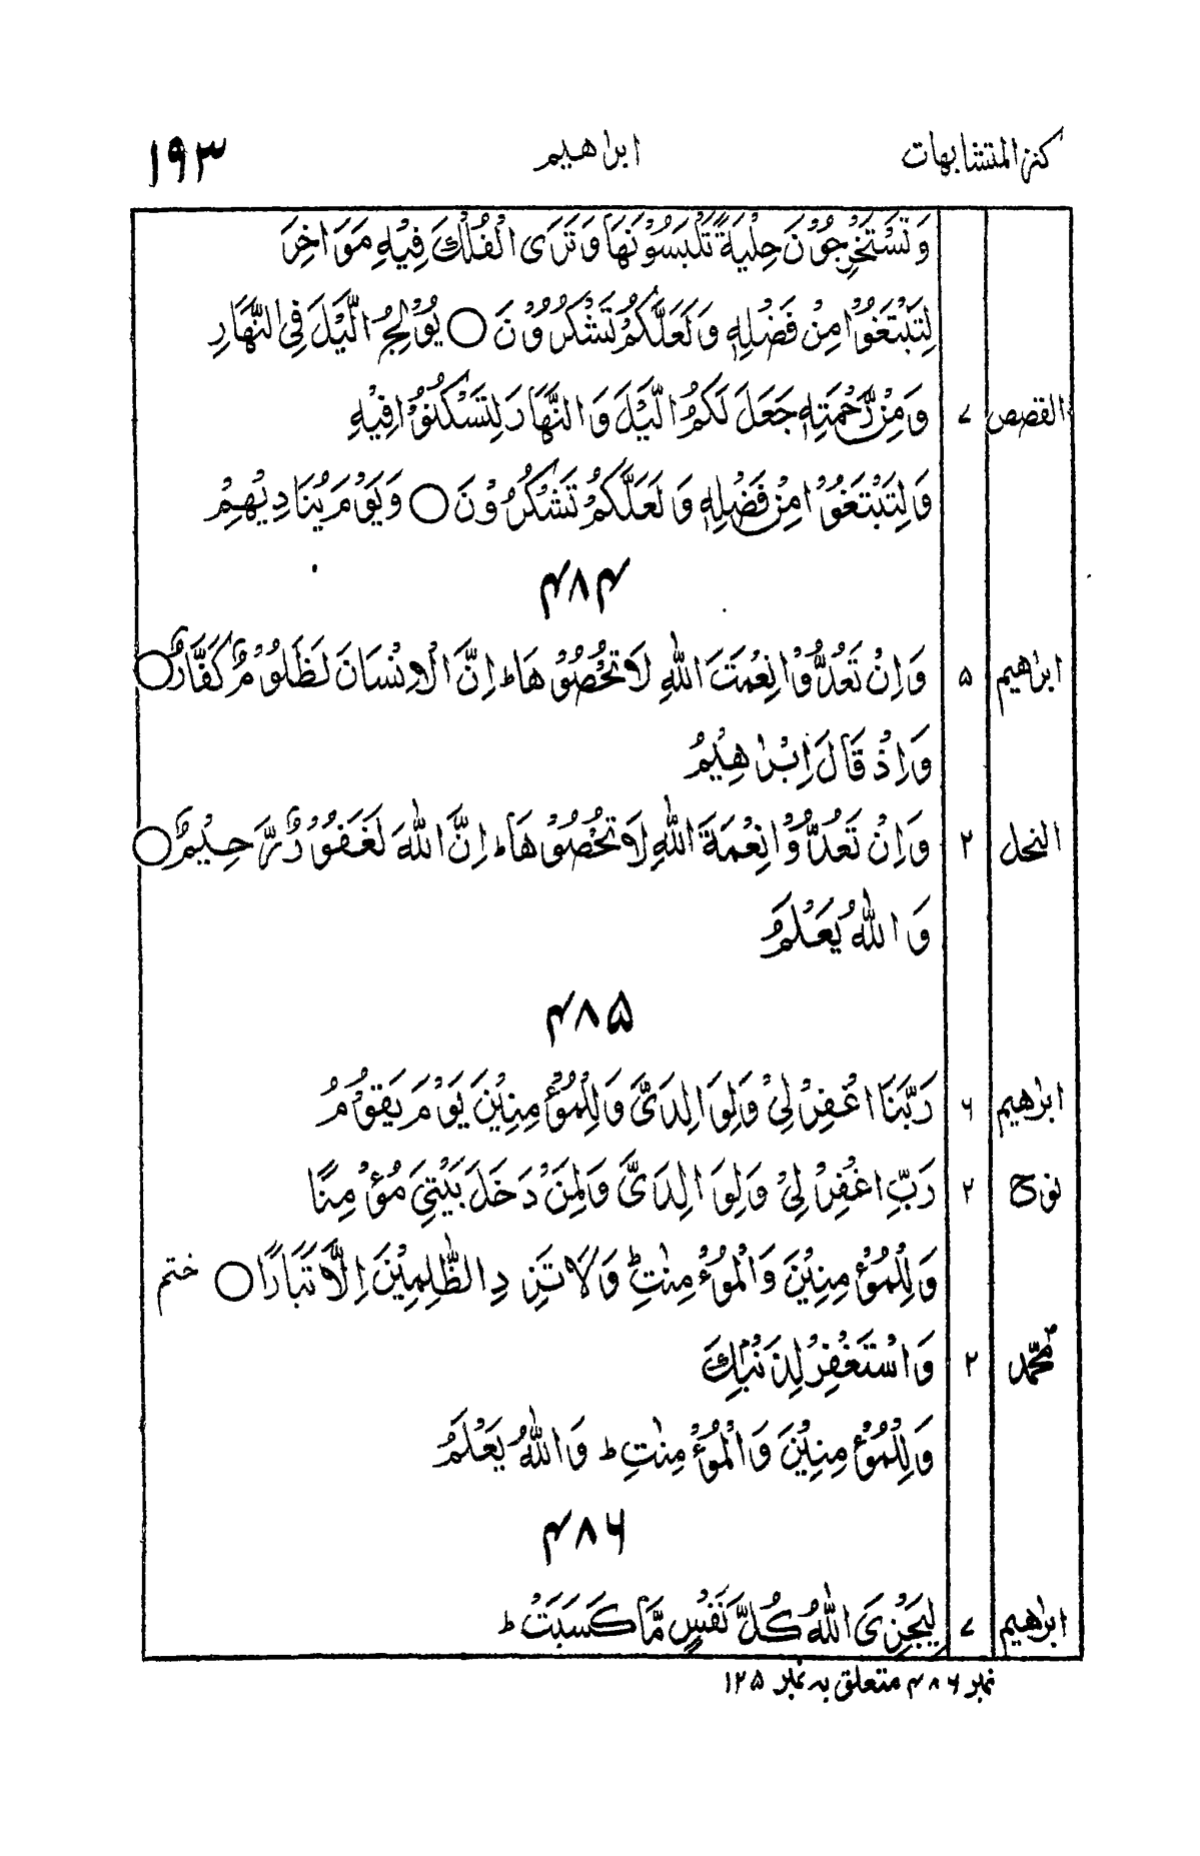 كنز المتشابهات ابراهيم ۱۹۳
وَتَسْتَخْرِجُوْنَ حِلْيَةً تَلْبَسُوْنَهَا وَتَرَى الْفُلْكَ فِيْهِ مَوَاخِرَ
لِتَبْتَغُوْا مِنْ فَضْلِهٖ وَلَعَلَّكُمْ تَشْكُرُوْنَ ○ يُوْلِجُ الَّيْلَ فِى النَّهَارِ
القصص ۷ وَمِنْ رَّحْمَتِهٖ جَعَلَ لَكُمُ الَّيْلَ وَالنَّهَارَ لِتَسْكُنُوْا فِيْهِ
وَلِتَبْتَغُوْا مِنْ فَضْلِهٖ وَلَعَلَّكُمْ تَشْكُرُوْنَ ○ وَيَوْمَ يُنَادِيْهِمْ
۴۸۴
ابراهيم ۵ وَاِنْ تَعُدُّوْا نِعْمَتَ اللّٰهِ لَا تُحْصُوْهَا ط اِنَّ الْاِنْسَانَ لَظَلُوْمٌ كَفَّارٌ ○
وَاِذْ قَالَ اِبْرٰهِيْمُ
النحل ۲ وَاِنْ تَعُدُّوْا نِعْمَةَ اللّٰهِ لَا تُحْصُوْهَا ط اِنَّ اللّٰهَ لَغَفُوْرٌ رَّحِيْمٌ ○
وَاللّٰهُ يَعْلَمُ
۴۸۵
ابرٰهيم ۶ رَبَّنَا اغْفِرْ لِىْ وَلِوَالِدَىَّ وَلِلْمُؤْمِنِيْنَ يَوْمَ يَقُوْمُ
نوح ۲ رَبِّ اغْفِرْ لِىْ وَلِوَالِدَىَّ وَلِمَنْ دَخَلَ بَيْتِىَ مُؤْمِنًا
وَلِلْمُؤْمِنِيْنَ وَالْمُؤْمِنٰتِ ط وَلَا تَزِدِ الظّٰلِمِيْنَ اِلَّا تَبَارًا ○ ختم
محمّد ۲ وَاسْتَغْفِرْ لِذَنْبِكَ
وَلِلْمُؤْمِنِيْنَ وَالْمُؤْمِنٰتِ ط وَاللّٰهُ يَعْلَمُ
۴۸۶
ابرٰهيم ۷ لِيَجْزِىَ اللّٰهُ كُلَّ نَفْسٍ مَّا كَسَبَتْ ط
نمبر ۴۸۶ متعلق به نمبر ۱۲۵